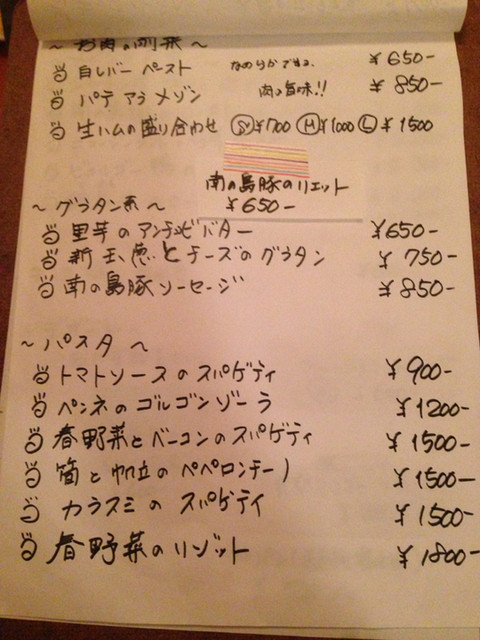 ~ お肉の前菜 ~
白レバーペースト なめらかですョ ¥650-
パテ アラ メゾン 肉の旨味!! ¥850-
生ハムの盛り合わせ Ⓢ¥700 Ⓜ¥1000 Ⓛ¥1500
南の島豚のリエット
¥650-
~ グラタン系 ~
里芋のアンチョビバター ¥650-
新玉葱とチーズのグラタン ¥750-
南の島豚ソーセージ ¥850-
~ パスタ ~
トマトソースのスパゲティ ¥900-
ペンネのゴルゴンゾーラ ¥1200-
春野菜とベーコンのスパゲティ ¥1500-
筍と帆立のペペロンチーノ ¥1500-
カラスミのスパゲティ ¥1500-
春野菜のリゾット ¥1800-